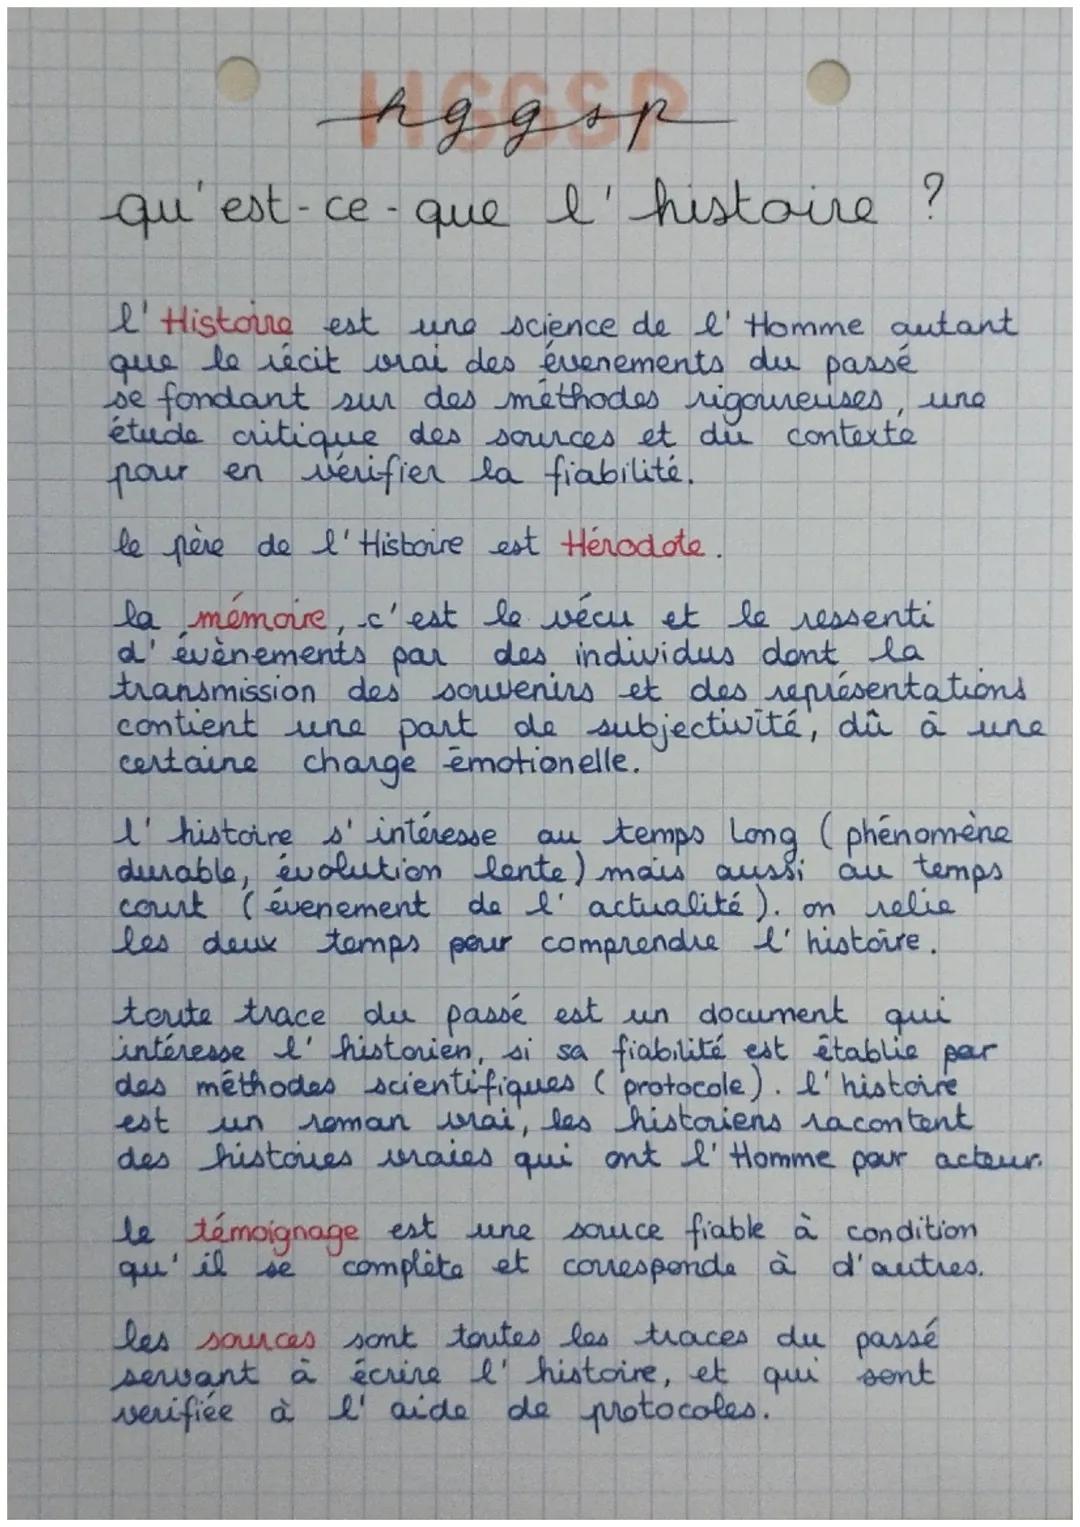 HGGSP
hggsp
qu'est-ce-que l'histoire ?
l'Histoire est une science de l'Homme autant
que le récit vrai des évenements du passé
se fondant sur des méthodes rigoureuses, une
étude critique des sources et du contexte
pour en vérifier la fiabilité.
le père de l'Histoire est Hérodote.
la mémoire, c'est le vécu et le ressenti
d'évènements par des individus dont la
transmission des souvenirs et des représentations
contient une part de subjectivité, dû à une
certaine charge émotionelle.
l'histoire s'intéresse au temps long (phénomène
durable, évolution lente) mais aussi au temps
court (évenement de l'actualité). on relie
les deux temps pour comprendre l'histoire.
toute trace du passé est un document qui
intéresse l'historien, si sa fiabilité est établie par
des méthodes scientifiques (protocole). l'histoire
est un roman vrai, les historiens racontent
des histoires vraies qui ont l'Homme pour acteur.
le témoignage est une source fiable à condition
qu'il se complète et corresponde à d'autres.
les sources sont toutes les traces du passé
servant à écrire l'histoire, et qui sont
verifiée à l'aide de protocoles.